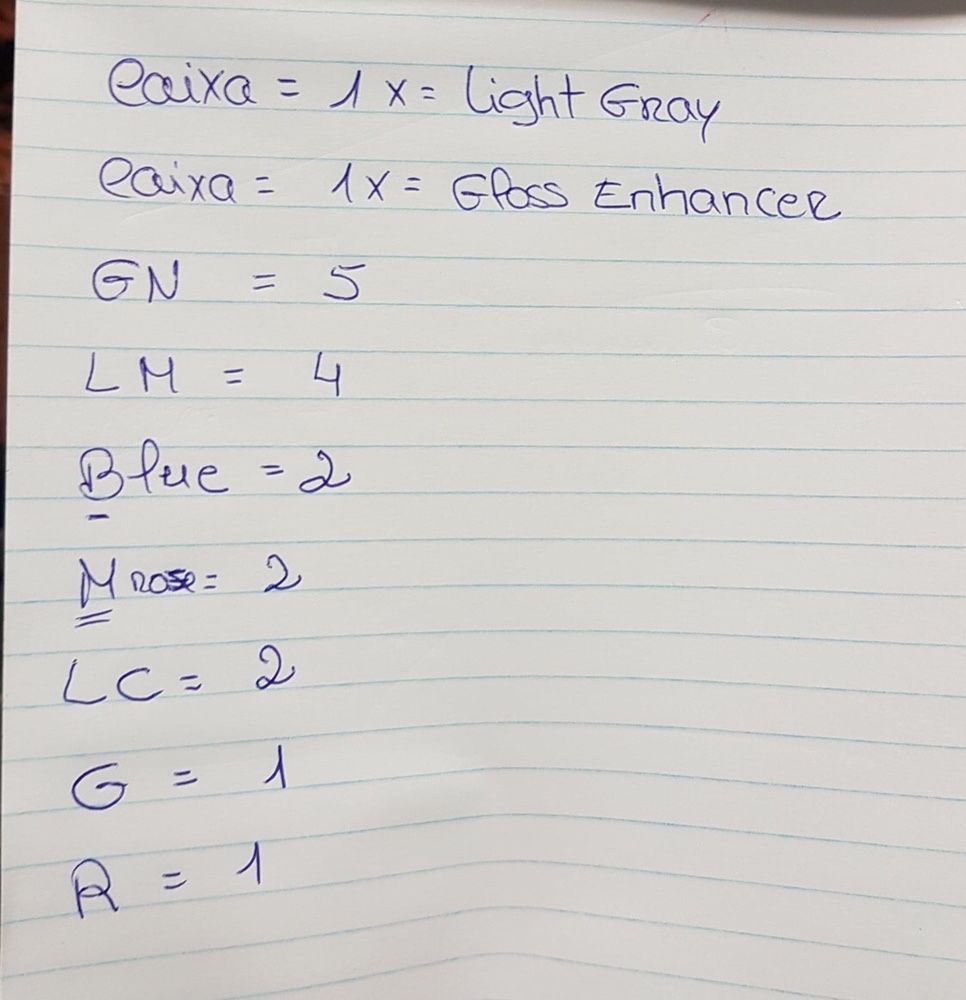 Caixa = 1 x = Light Gray
Caixa = 1x = Gloss Enhancer
GN = 5
LM = 4
Blue = 2
M rose = 2
LC = 2
G = 1
R = 1